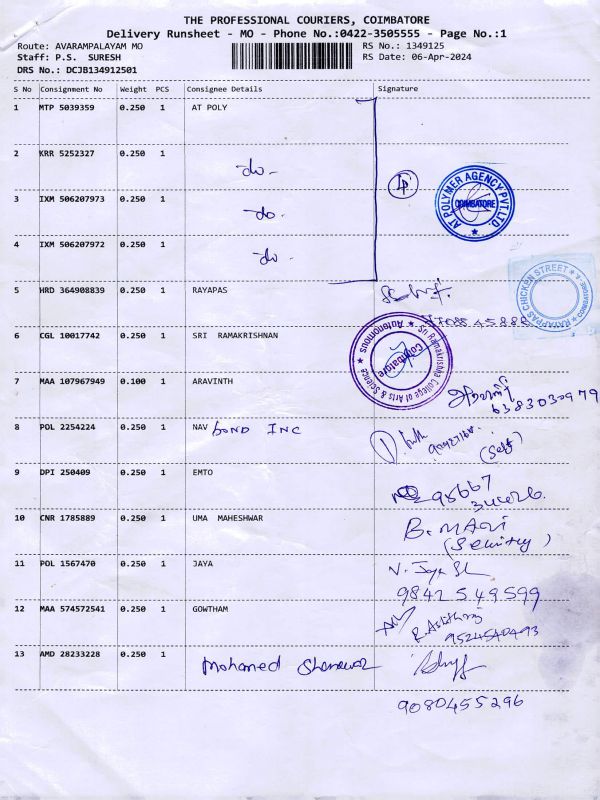 THE PROFESSIONAL COURIERS, COIMBATORE
Delivery Runsheet - MO - Phone No.:0422-3505555 - Page No.:1
Route: AVARAMPALAYAM MO RS No.: 1349125
Staff: P.S. SURESH RS Date: 06-Apr-2024
DRS No.: DCJB134912501
S No Consignment No Weight PCS Consignee Details Signature
1 MTP 5039359 0.250 1 AT POLY
2 KRR 5252327 0.250 1 -do-
3 IXM 506207973 0.250 1 -do-
4 IXM 506207972 0.250 1 -do-
AT POLYMER AGENCY PVT.LTD.
COIMBATORE
5 HRD 364908839 0.250 1 RAYAPAS
RAYAPPAS CHICKEN STREET
6 CGL 10017742 0.250 1 SRI RAMAKRISHNAN
Sri Ramakrishna College of Arts & Science
Autonomous
Coimbatore
7 MAA 107967949 0.100 1 ARAVINTH
6383030979
8 POL 2254224 0.250 1 NAV BOND INC
(Self)
9 DPI 250409 0.250 1 EMTO
10 CNR 1785889 0.250 1 UMA MAHESHWAR B. MARI
(Security)
11 POL 1567470 0.250 1 JAYA
9842549599
12 MAA 574572541 0.250 1 GOWTHAM
13 AMD 28233228 0.250 1 Mohamed
9080455296